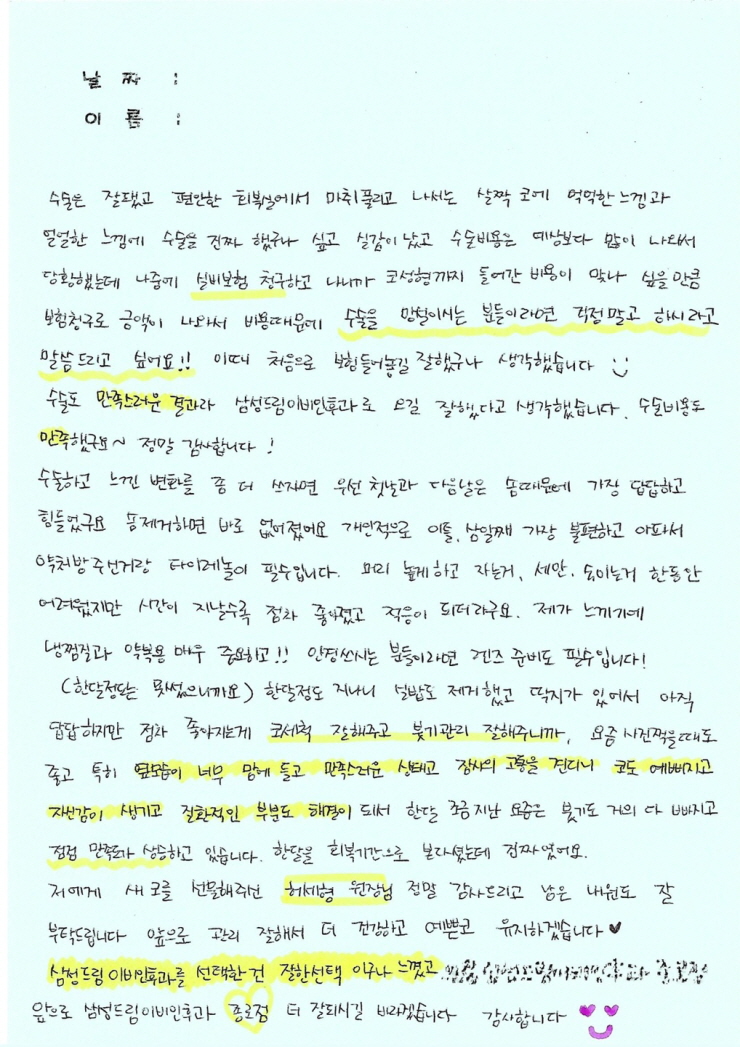 날 짜 :
이 름 :
수술은 잘됐고 편안한 회복실에서 마취풀리고 나서는 살짝 코에 먹먹한느낌과
얼얼한 느낌에 수술을 진짜 했구나 싶고 실감이 났고 수술비용은 예상보다 많이 나와서
당황했는데 나중에 실비보험 청구하고 나니까 코성형까지 들어간 비용이 맞나 싶을만큼
보험청구로 금액이 나와서 비용때문에 수술을 망설이시는 분들이라면 걱정말고 하시라고
말씀드리고 싶어요!! 이때 처음으로 보험들어놓길 잘했구나 생각했습니다
수술도 만족스러운 결과라 삼성드림이비인후과로 오길 잘했다고 생각했습니다. 수술비용도
만족했구요~ 정말 감사합니다!
수술하고 느낀 변화를 좀 더 쓰자면 우선 첫날과 다음날은 솜때문에 가장 답답하고
힘들었구요 솜제거하면 바로 없어졌어요 개인적으로 이틀, 삼일째 가장 불편하고 아파서
약처방주신거랑 타이레놀이 필수입니다. 머리 높게하고 자는거, 세안. 숙이는거 한동안
어려웠지만 시간이 지날수록 점차 좋아졌고 적응이 되더라구요. 제가 느끼기에
냉찜질과 약복용 매우 중요하고!! 안경쓰시는 분들이라면 렌즈 준비도 필수입니다!
(한달정도는 못썼으니까요) 한달정도 지나니 실밥도 제거했고 딱지가 있어서 아직
답답하지만 점차 좋아지는게 코세척 잘해주고 붓기관리 잘해주니까, 요즘 사진찍을때도
좋고 특히 옆모습이 너무 맘에 들고 만족스러운 상태고 잠시의 고통을 견디니 코도 예뻐지고
자신감이 생기고 질환적인 부분도 해결이 되서 한달 조금지난 요즘은 붓기도 거의 다 빠지고
점점 만족도가 상승하고 있습니다. 한달을 회복기간으로 보라셨는데 진짜였어요.
저에게 새 코를 선물해주신 허세형 원장님 정말 감사드리고 남은 내원도 잘
부탁드립니다 앞으로 관리 잘해서 더 건강하고 예쁜코 유지하겠습니다♥
삼성드림이비인후과를 선택한건 잘한선택 이구나 느꼈고
앞으로 삼성드림이비인후과 종로점 더 잘되시길 바라겠습니다 감사합니다